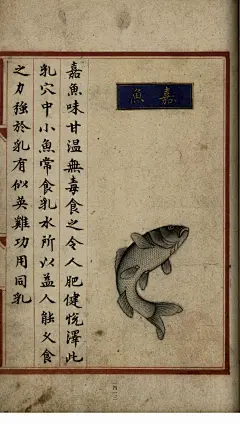 嘉魚
嘉魚味甘温無毒食之令人肥健悅澤此
乳穴中小魚常食乳水所以益人能久食
之力强於乳有似英雞功用同乳